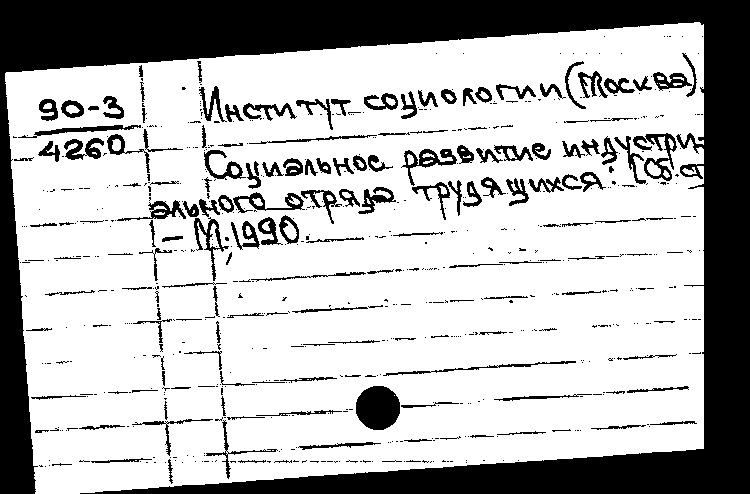 90-3
4260
Институт социологии (Москва).
Социальное развитие индустри-
ального отряда трудящихся: [Сб. ст
– М., 1990.